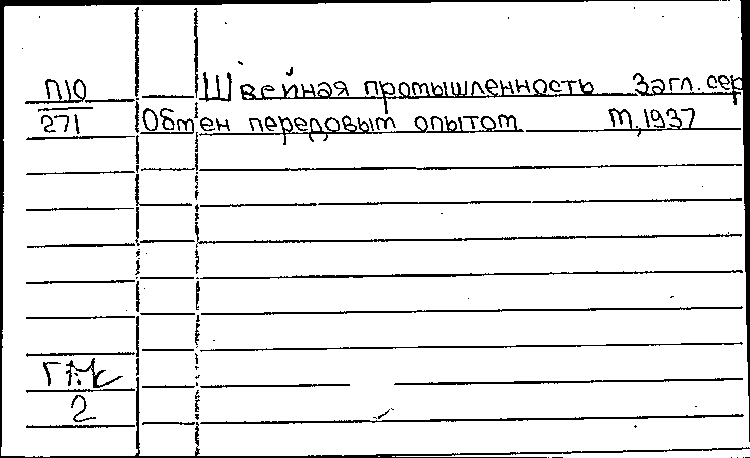 П10 Швейная промышленность Загл. сер
271 Обмен передовым опытом М, 1937
2